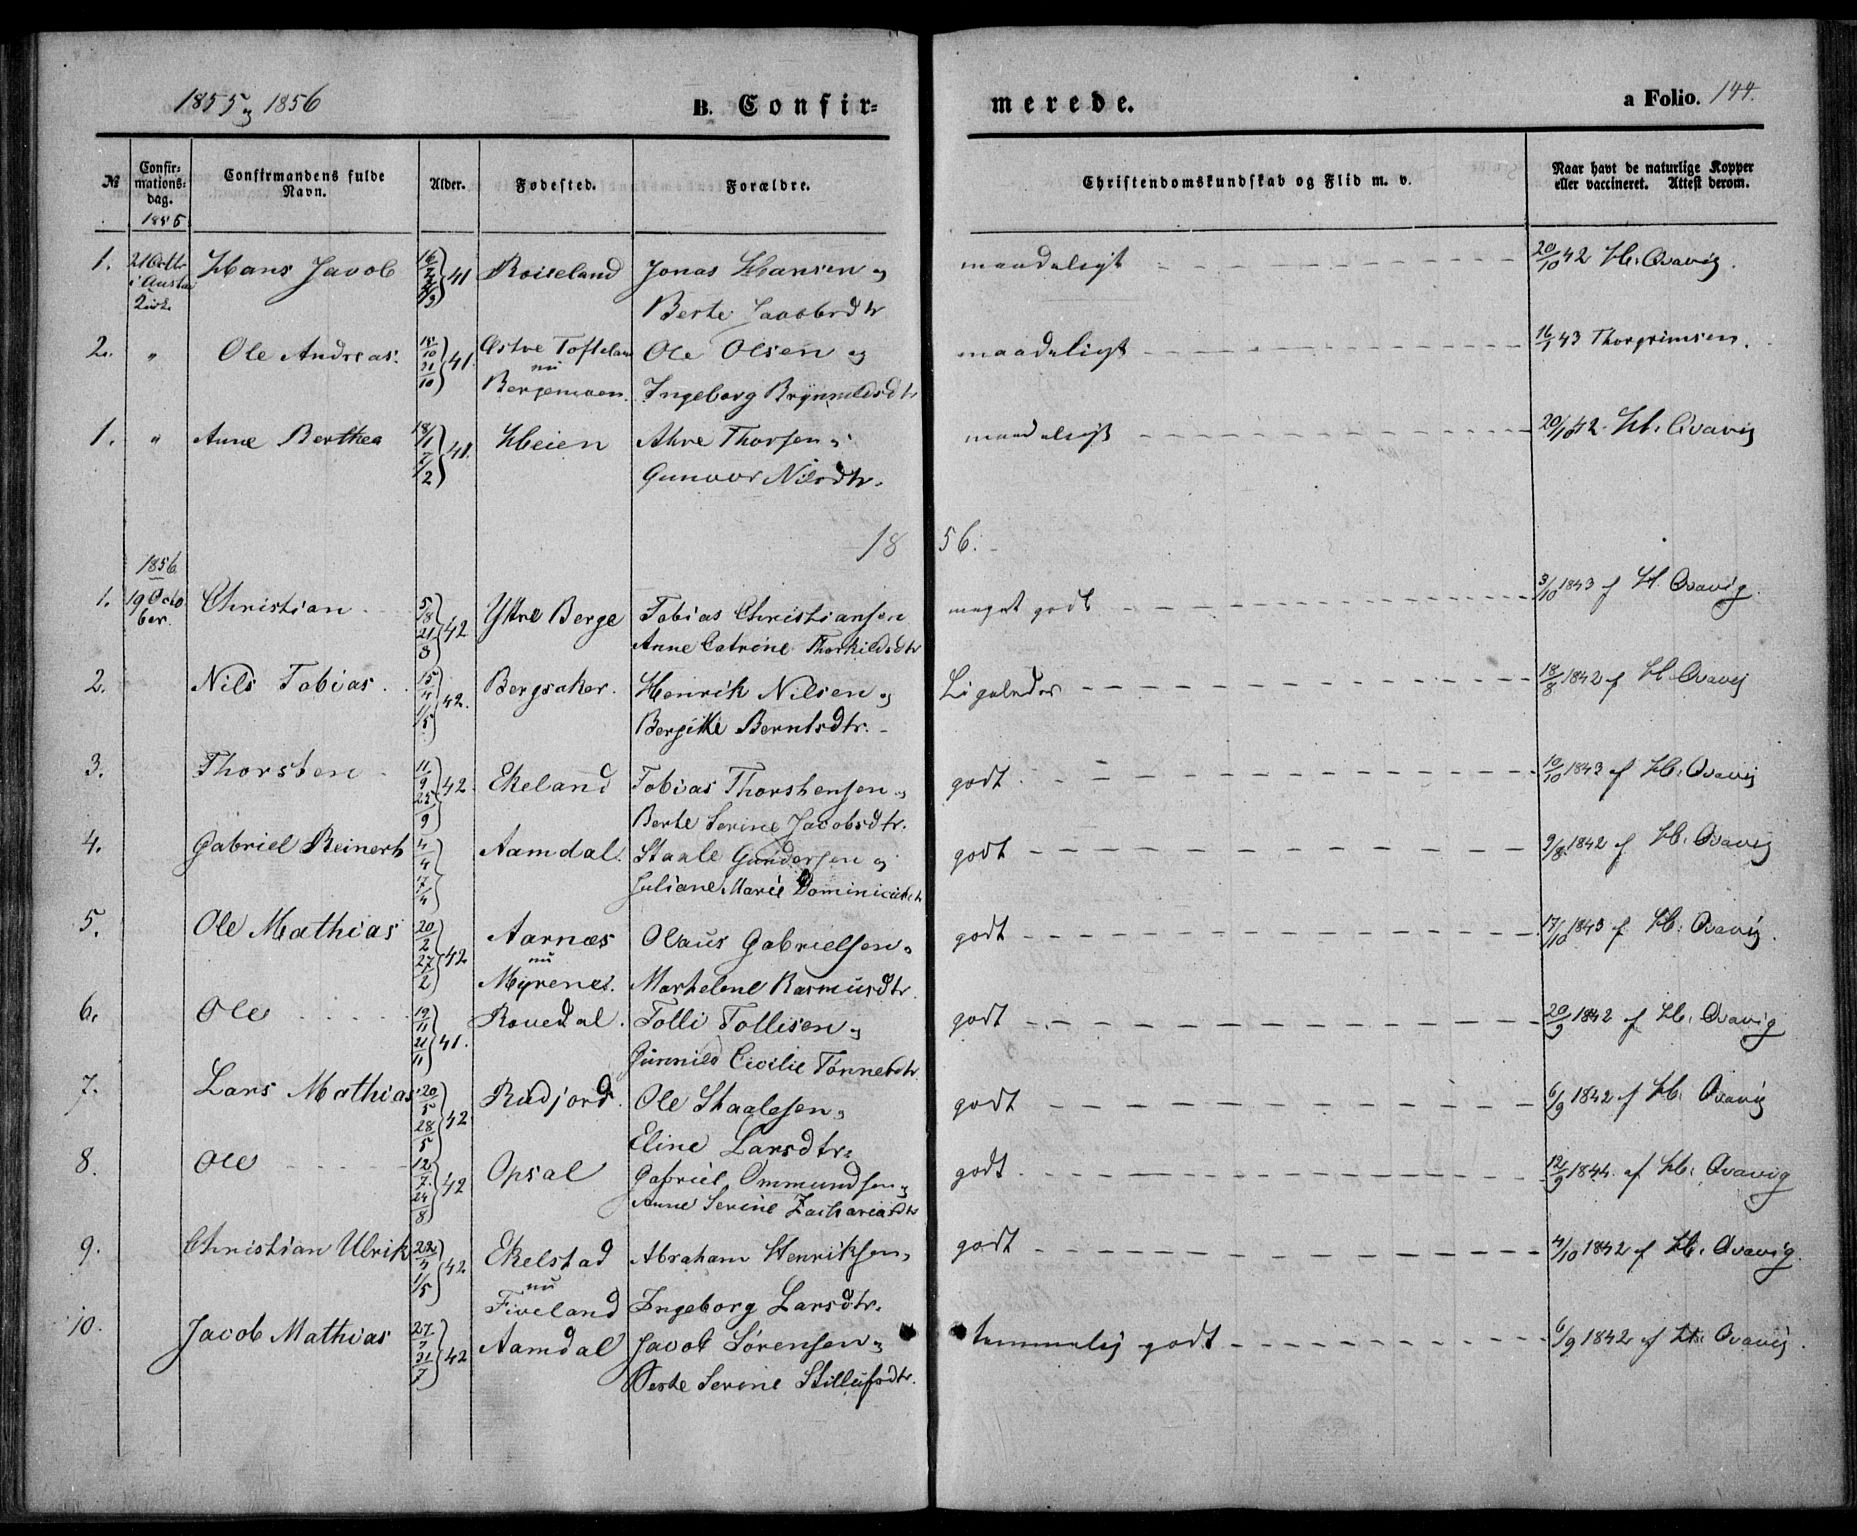 1855 og 1856
B. Confir=
merede.
a Folio. 144.
№
Confir=
mations=
dag.
1855
Confirmandens fulde
Navn.
Alder.
Fødested.
Forældre.
Christendomskundskab og Flid m. v.
Naar havt de naturlige Kopper
eller vaccineret. Attest derom.
1. Hans Jacob 41 Roiseland Jonas Hansen og maadeligt 20/10 42 H. Qvavig.
Berte Jacobsdtr
2. " Ole Andreas. 41. Østre Tofteland Ole Olsen og maadeligt 16/1 43 Thorgrimsen.
nu
Bergemoen. Ingeborg
1. " Anne Berthea 18/1 7/2 41. Heien Thorsen og maadeligt 20/10 42. H. Qvavig
Gunvor Nilsdtr.
18 56.
1856.
1. 19 Octo Christian 5/8 21/8 42 Ytre Berge Tobias Christiansen meget godt 3/10 1843 af H. Qvavig.
ber. Anne Catrine Thorkildsdtr
2. Nils Tobias. 15/4 1/5 42. Bergsaker. Henrik Nilsen og Ligeledes 18/8 1842 af H. Qvavig
Bergitte Berntsdtr.
3. Thorsten 11/9 25/9 42. Ekeland Tobias Thorstensen og godt 10/10 1843 af H. Qvavig
Berte Serine Jacobsdtr.
4. Gabriel Reinert 4/4 17/4 Aamdal. Staale Gundersen og godt 9/8 1842 af H. Qvavig
Juliane Marie
5. Ole Mathias 20/2 27/2 42 Aarnæs Olaus Gabrielsen og godt 17/10 1843 af H. Qvavig.
nu
Myrene. Marthelene Rasmusdtr.
6. Ole 19/11 21/11 41. Rovedal. Tolli Tollisen og godt 20/9 1842 af H. Qvavig
Gunnild Cicilie Tønnesdtr.
7. Lars Mathias 20/5 28/5 42 Rudjord. Ole Staalesen og godt 6/9 1842 af H. Qvavig
Eline Larsdtr.
8. Ole 12/7 24/8 42 Opsal Gabriel Ommundsen og godt 12/9 1844 af H. Qvavig
Anne Serine Zachariasdtr
9. Christian Ulrik 22/4 1/5 42 Ekelstad Abraham Henriksen og godt 4/10 1842 af H. Qvavig.
nu
Fiveland Ingeborg Larsdtr.
10. Jacob Mathias 42 Aamdal Jacob Sørensen og temmelig godt 6/9 1842 af H. Qvavig.
Serine